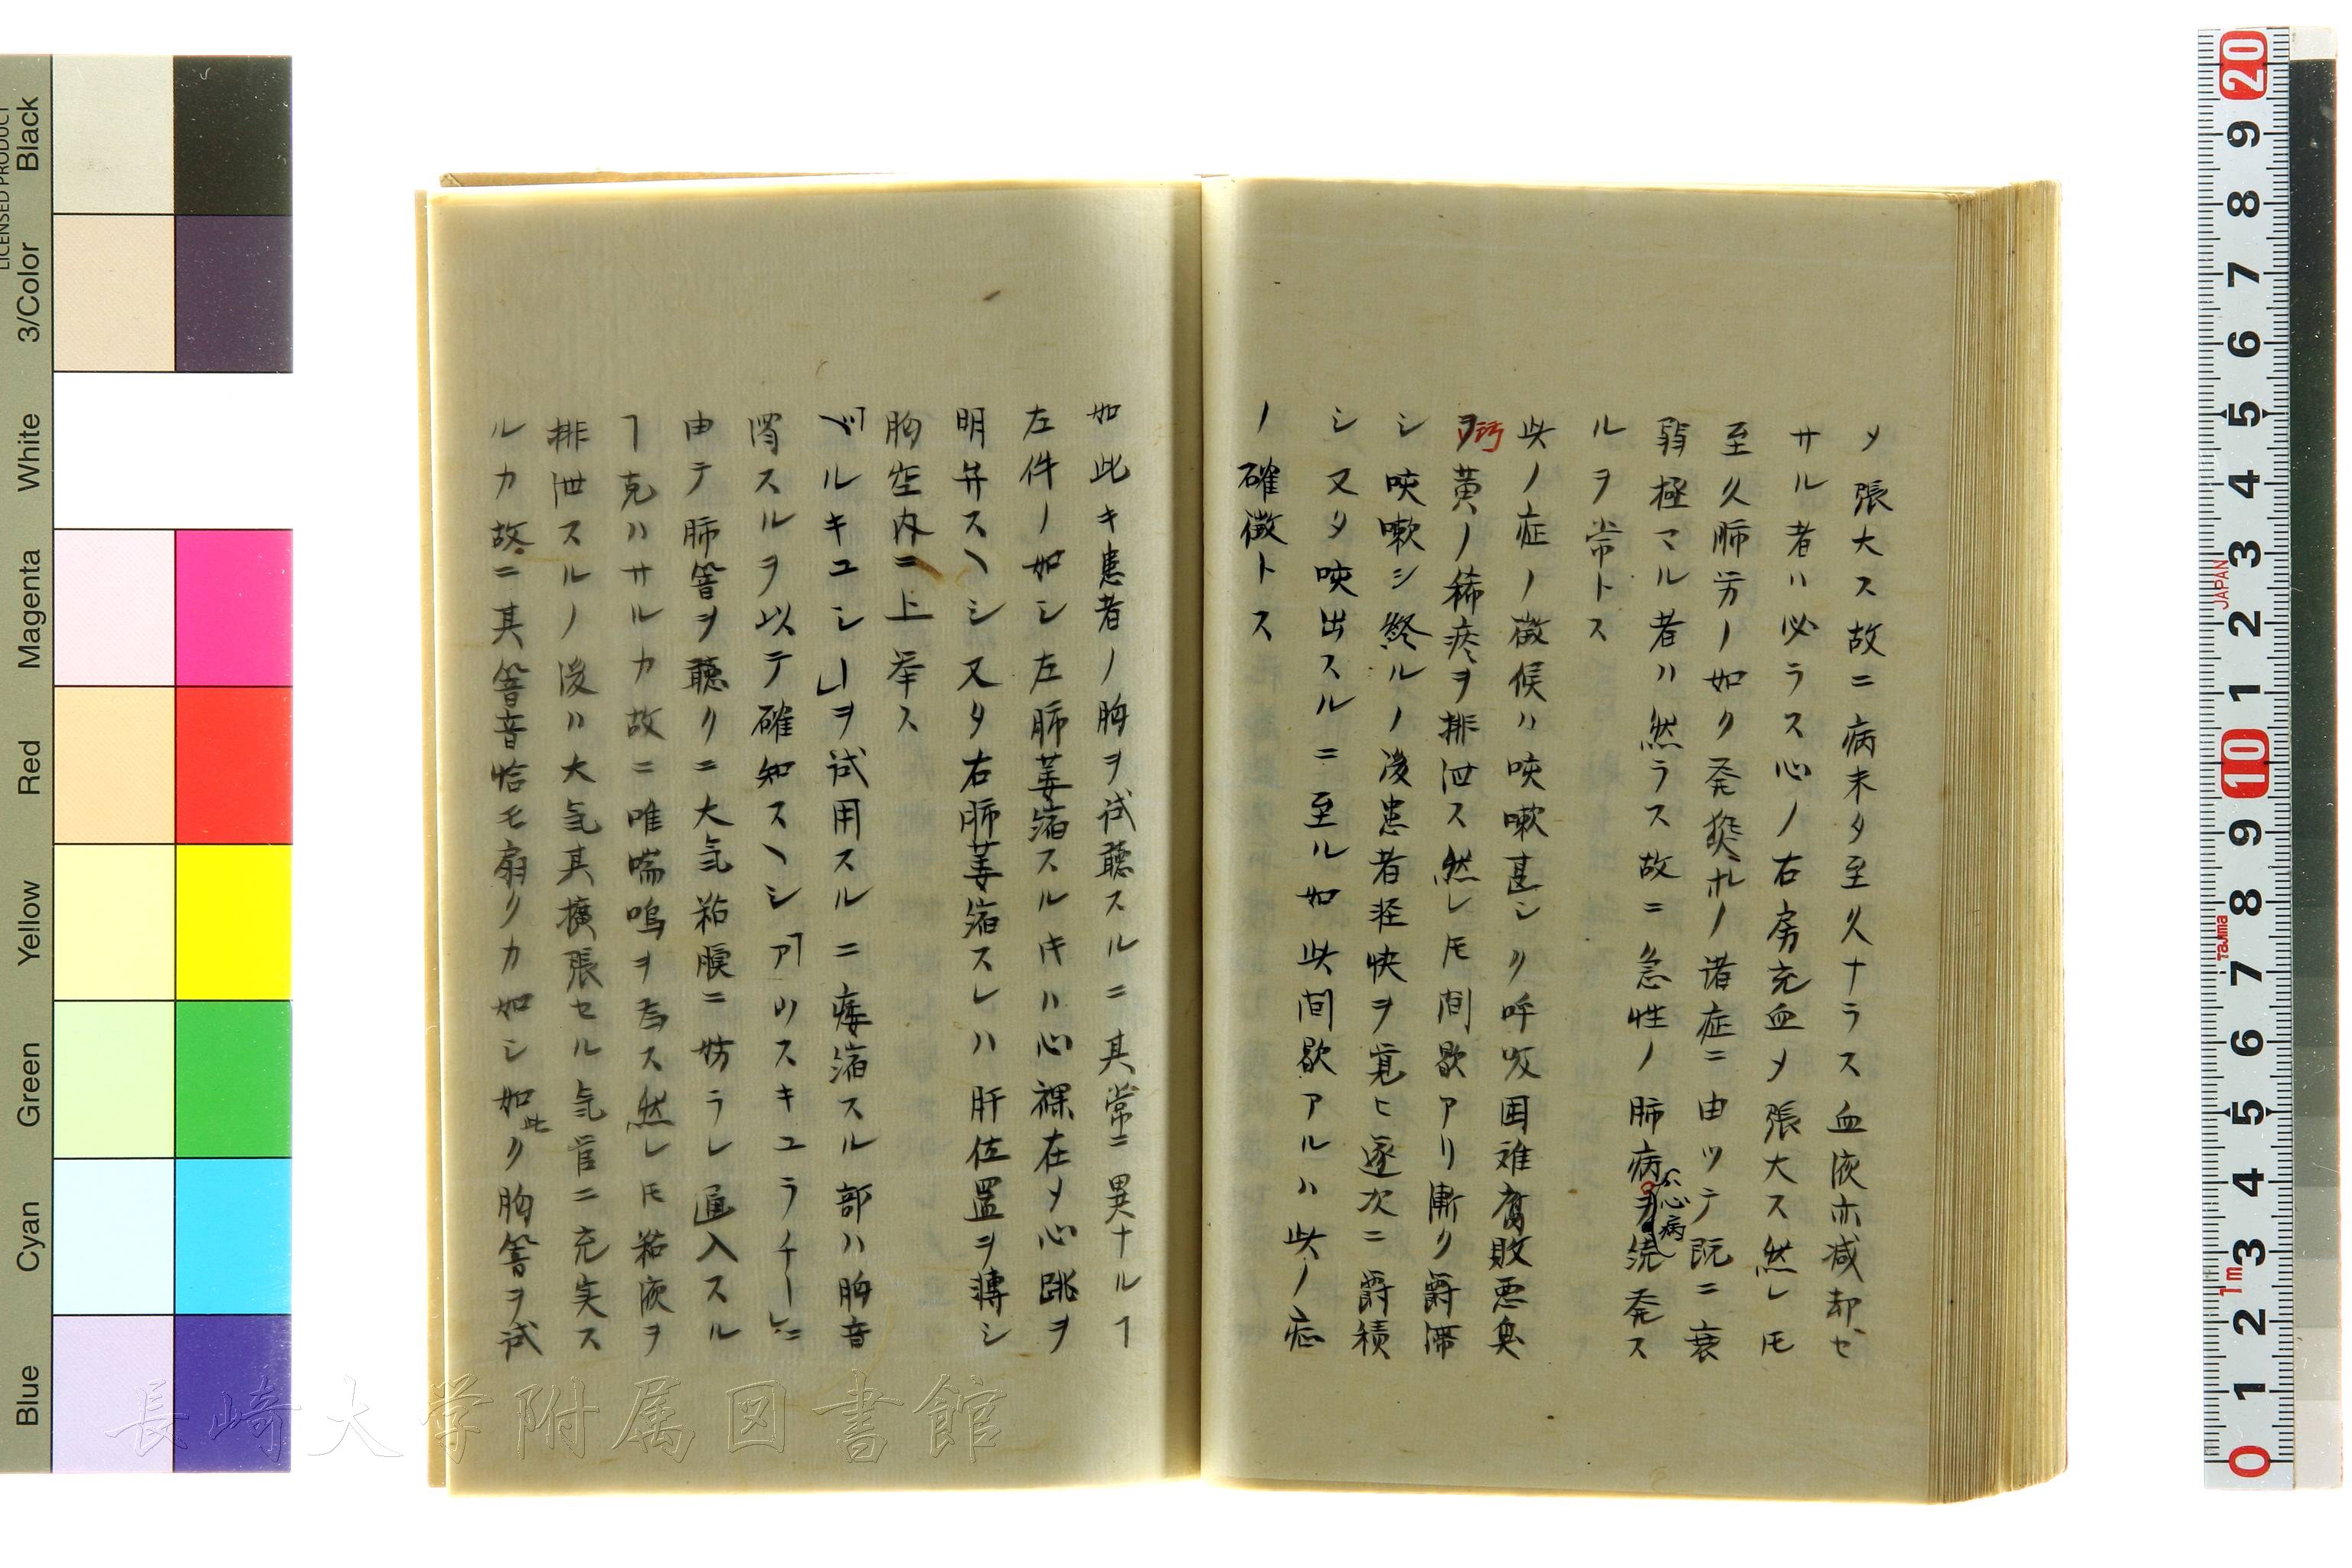 メ張大ス故ニ病未タ至久ナラス血液亦減却セ
サル者ハ必ラス心ノ右房充血メ張大ス然レ𪜈
至久肺労ノ如ク発熱ホノ諸症ニ由ツテ既ニ衰
弱極マル者ハ然ラス故ニ急性ノ肺病ヲ続発ス
心病
ルヲ常トス
此ノ症ノ徴候ハ咳嗽甚シク呼吸困难腐敗悪臭
ヲ黄ノ稀痰ヲ排泄ス然レ𪜈間歇アリ漸ク欝滞
シ咳嗽シ終ルノ後患者軽快ヲ覚ヒ逐次ニ欝積
シ又タ咳出スルニ至ル如此間歇アルハ此ノ症
ノ確徴トス
如此キ患者ノ胸ヲ試聴スルニ其常ニ異ナルヿ
左件ノ如シ左肺萎縮スルキハ心裸在メ心跳ヲ
明弁スヘシ又タ右肺萎縮スレハ肝位置ヲ轉シ
胸空内ニ上挙ス
ベルキユシーヲ試用スルニ痿縮スル部ハ胸音
濁スルヲ以テ確知スヘシアウスキユラチーニ
由テ肺音ヲ聴クニ大気粘膜ニ妨ラレ通入スル
ヿ克ハサルカ故ニ唯喘鳴ヲ為ス然レ𪜈粘液ヲ
排泄スルノ後ハ大気其擴張セル気管ニ充実ス
ルカ故ニ其響音恰モ扇クカ如シ如此ク胸響ヲ試
長崎大学附属図書館
LICENSED PRODUCT
Black
3/Color
White
Magenta
Red
Yellow
Green
Cyan
Blue
20
9
8
7
6
5
4
3
2
1
10
9
8
7
6
5
4
3
2
1
0
JAPAN
Tajima
1m